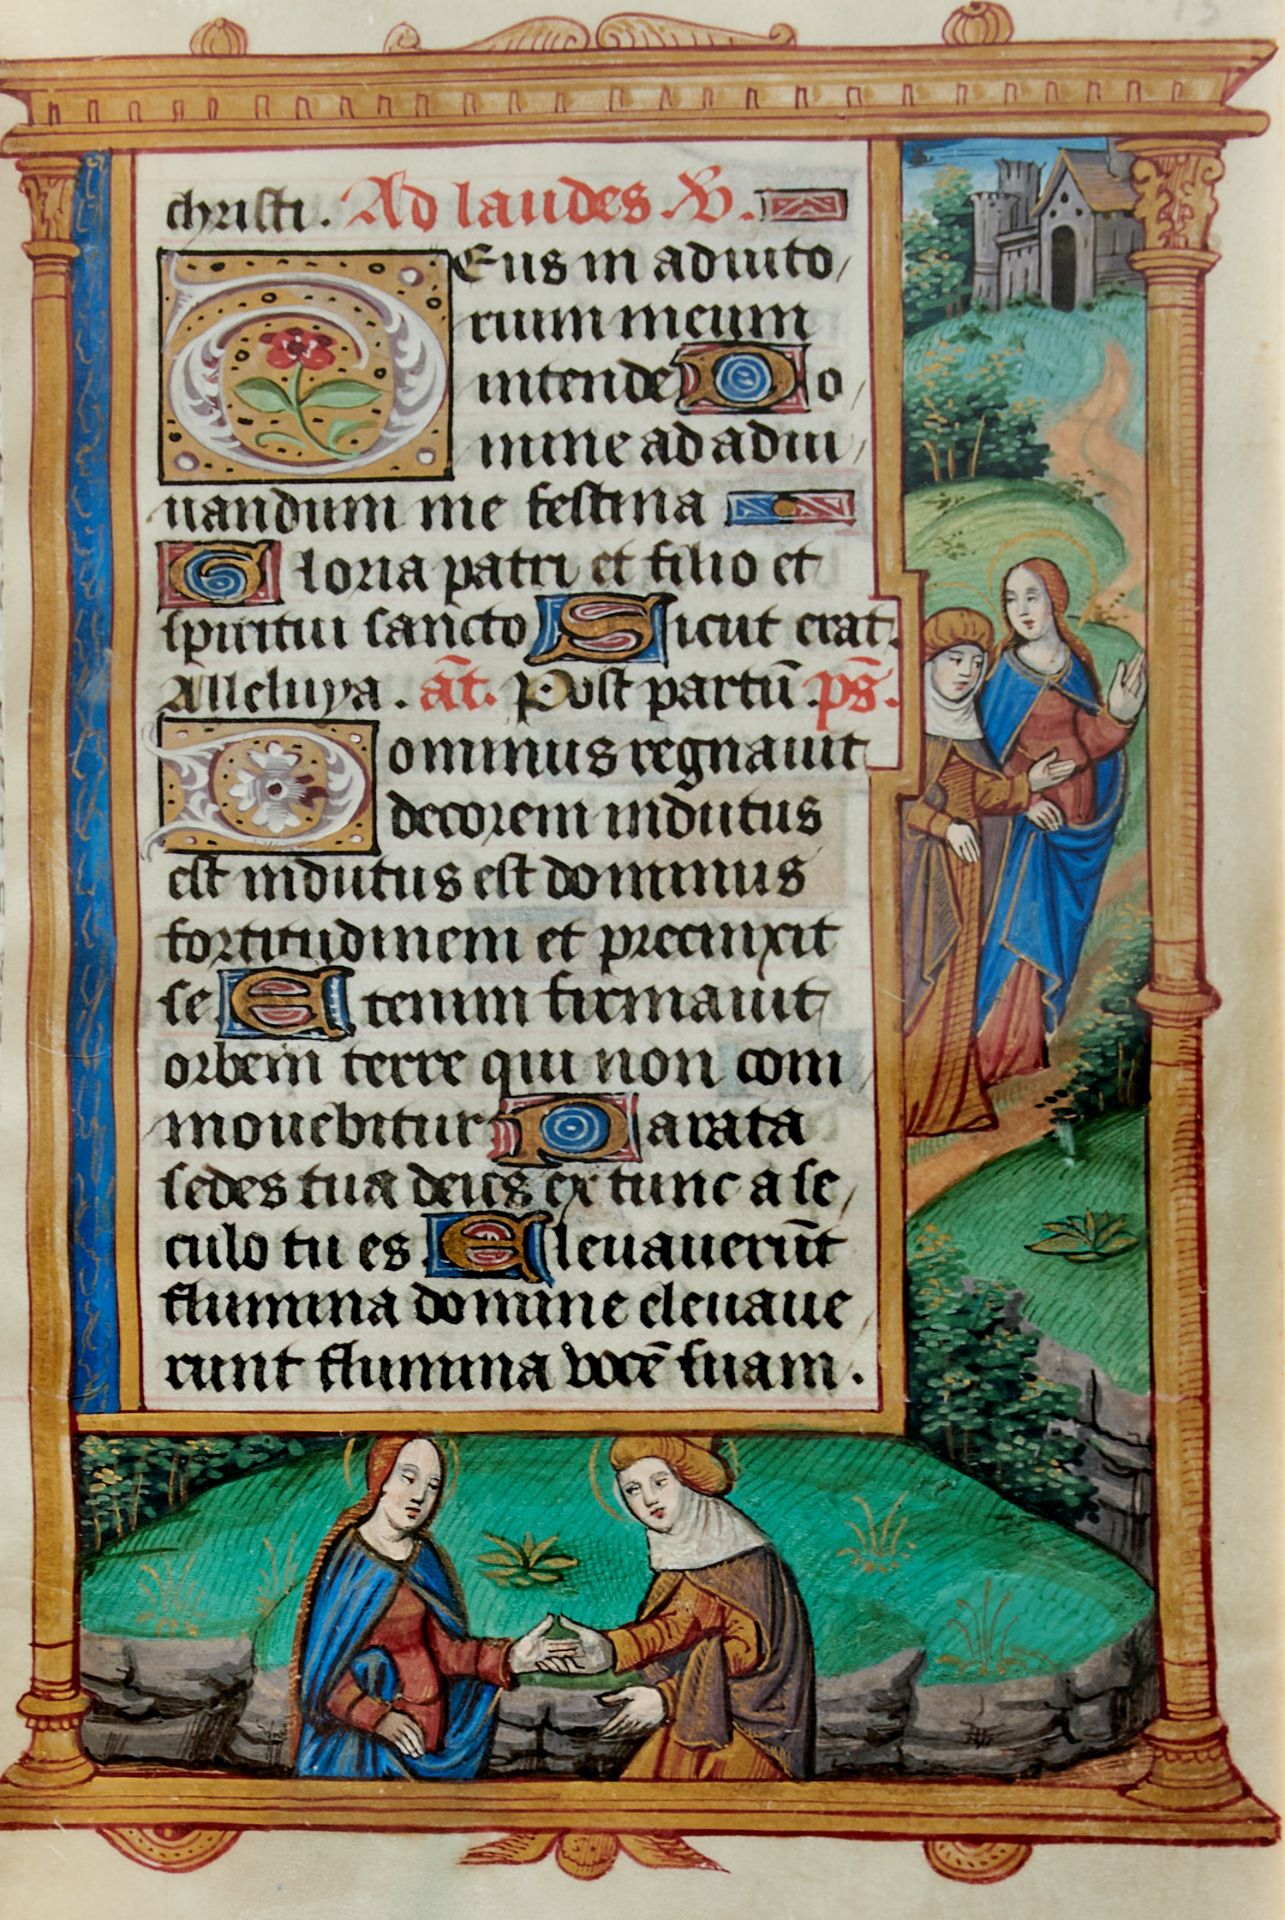 christi. Ad laudes. V.
Deus in adiuto/
rium meum
intende Do/
mine ad adiu/
uandum me festina
Gloria patri et filio et
spiritui sancto Sicut erat.
Alleluya. añt. Post partū. ps̄.
Dominus regnauit
decorem indutus
est indutus est dominus
fortitudinem et precinxit
se Etenim firmauit
orbem terre qui non com/
mouebitur Parata
sedes tua deus ex tunc a se/
culo tu es Eleuauerūt
flumina domine eleuaue/
runt flumina vocē suam.